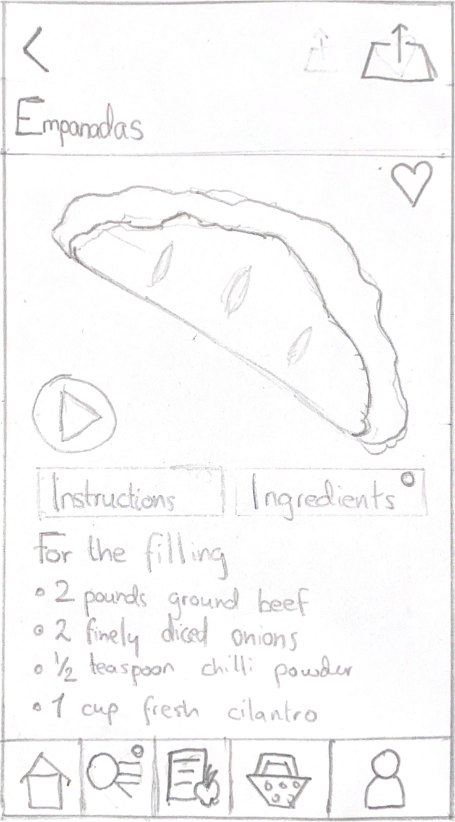 Empanadas
Instructions
Ingredients
For the filling
• 2 pounds ground beef
• 2 finely diced onions
• ½ teaspoon chilli powder
• 1 cup fresh cilantro